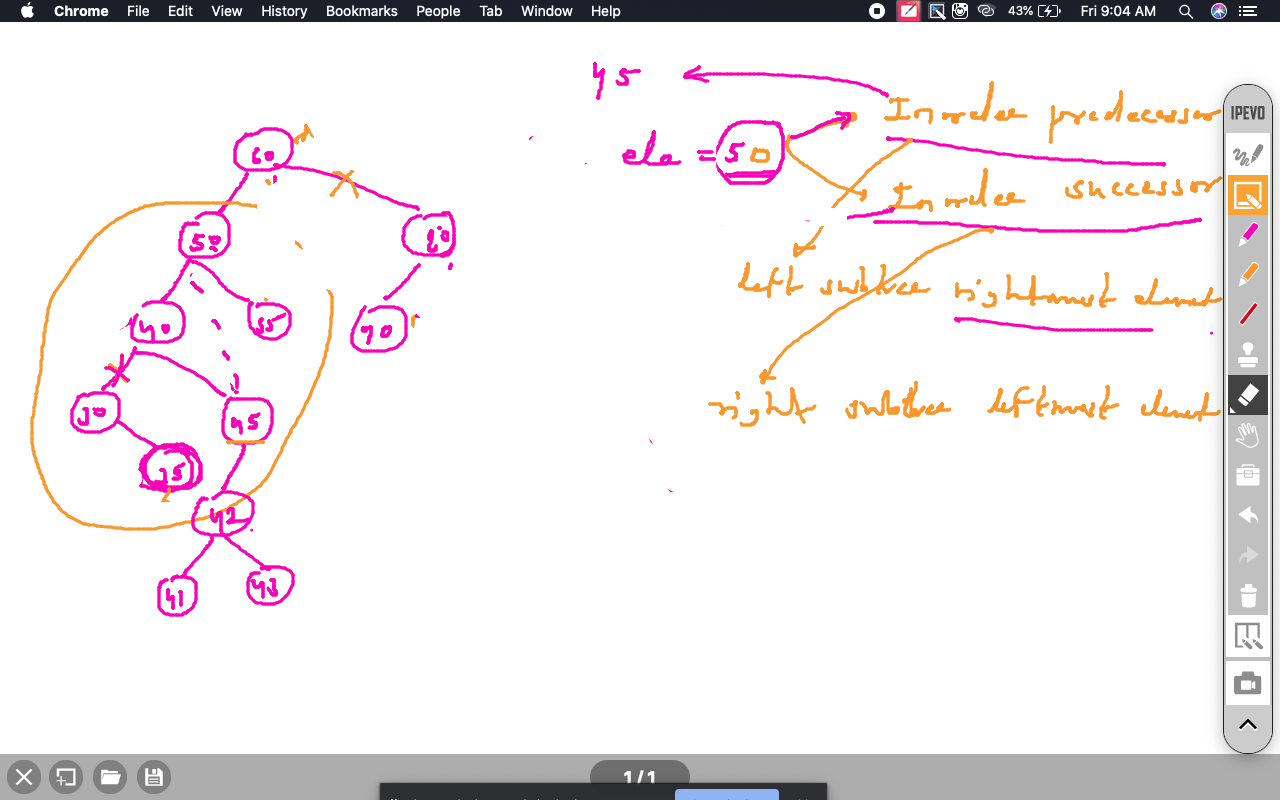 Chrome File Edit View History Bookmarks People Tab Window Help 43% Fri 9:04 AM
45
Inorder predecessor
ele = 50
Inorder successor
left subtree rightmost element
right subtree leftmost element
60
50
40
55
70
30
45
35
42
41
43
IPEVO
1/1